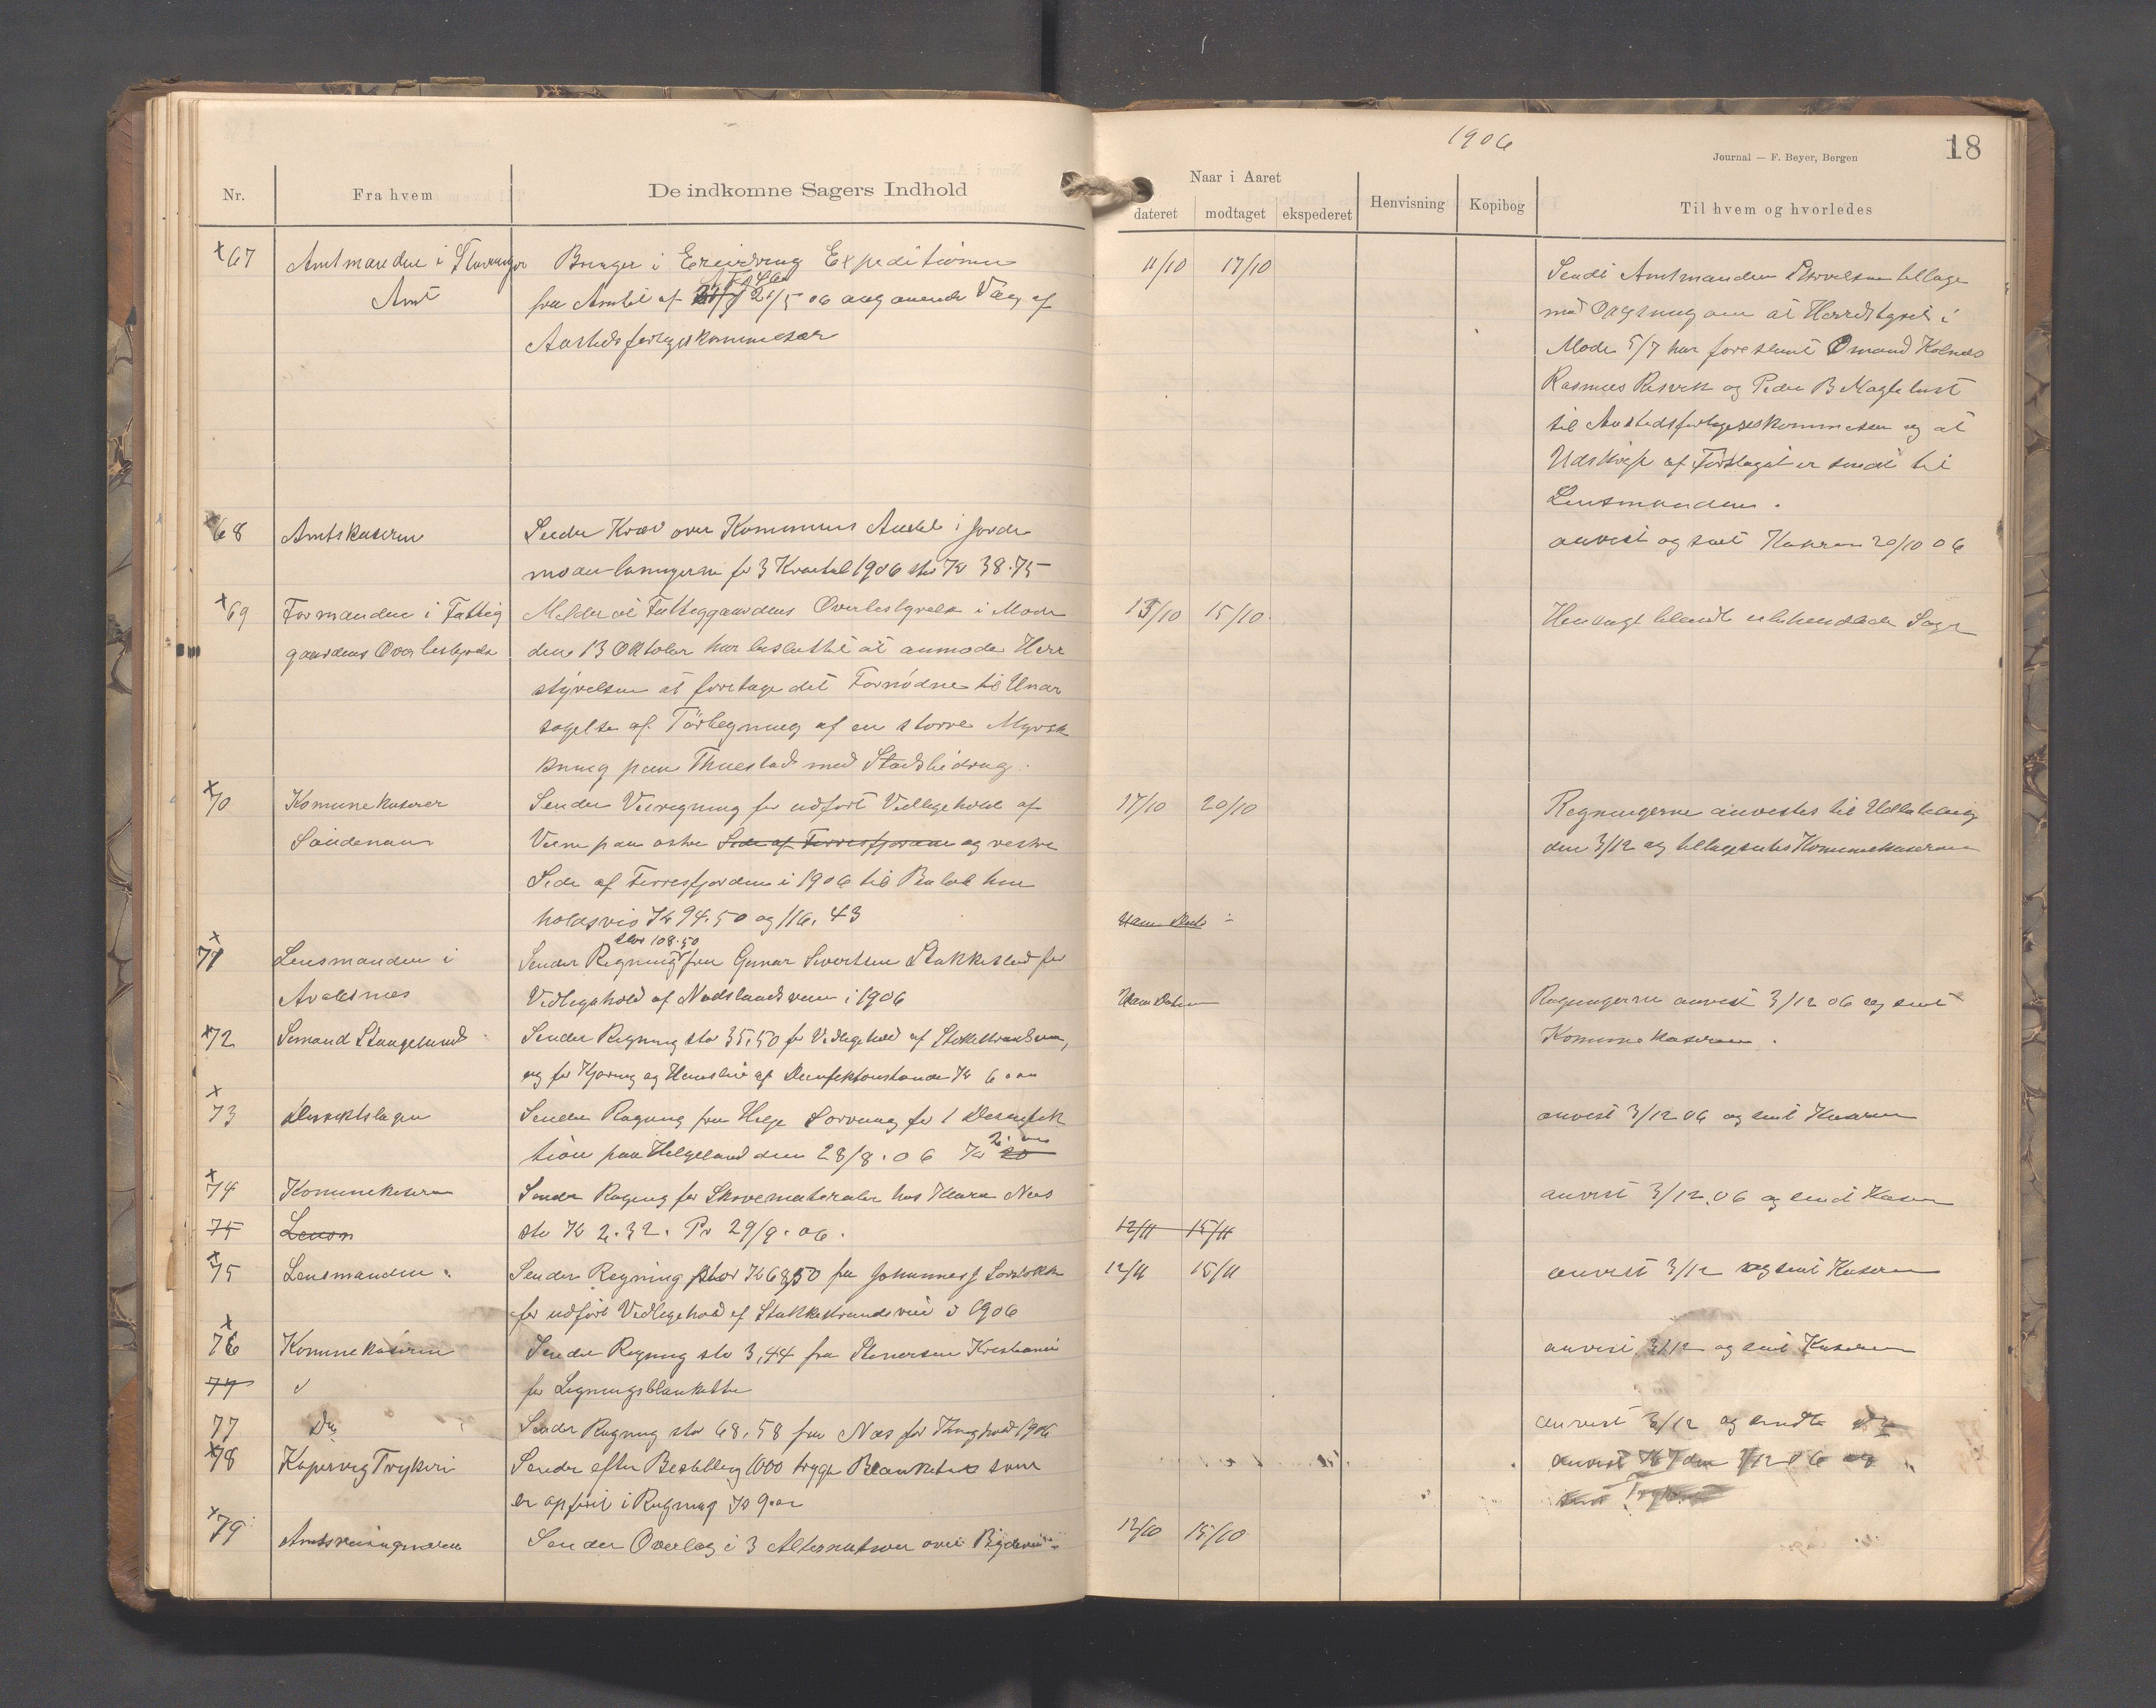 1906
Journal — F. Beyer, Bergen
18
Nr.
Fra hvem
De indkomne Sagers Indhold
Naar i Aaret
dateret
modtaget
ekspederet
Henvisning
Kopibog
Til hvem og hvorledes
67
Amtmanden i Stavanger
Amt
Bringer i Erindring Expeditionen
fra Amtet af 21/5 06 angaaende Valg af
11/10 17/10
Sendt Amtmanden Skrivelsen tillage
med at Herredstyret i
Møde 5/7 har foreslaaet Omund Kolnes
Rasmus og Peder B
til og at
Udskrift af Forslaget er sendt til
Lensmanden.
68
Amtskasseren
Sender Krav over Kommunens Andel i Jorde
moderlønningerne for 3 Kvartal 1906 stor Kr 38.75
anvist og sent Kasseren 20/10 06
69
Formanden i Fattig
gaardens Overbestyrelse
Melder at Fattiggaardens Overbestyrelse i Møde
den 13 Oktober har besluttet at anmode Herr
styrelsen at foretage det Fornødne til Under
søgelse af Tørlægning af en større Myrstr
ækning paa med Statsbidrag.
13/10 15/10
Henlagt blandt ubehandlede Sager
70
Komunekaserer
Sender Veiregning for udført Vedligehold af
Veiene paa østre Side af Førresfjorden og vestre
Side af Førresfjorden i 1906 til Beløb hen
holdsvis Kr 94.50 og 116.43
17/10 20/10
Regningerne anvistes til Udbetaling
den 3/12 og tillagesentes Komunekasseren
71
Lensmanden i
Avaldsnes
stor 108.50
Sender Regning fra Gunar Sivertsen Stakkestad for
Vedligehold af i 1906
Uden Datum
Regningerne anvist 3/12 06 og sent
Komunekasseren.
72
Simand Stangeland
Sender Regning stor 35.50 for Vedligehold af
og for Kjøring og Husleie af Kr 6.00
73
Sender Regning fra Helge for 1 Desinfek
tion paa Helgeland den 28/8.06 Kr 20
anvist 3/12 06 og sent Kasseren
74
Komunekaseren
Sender Regning for Skrivematerialer hos Næs
stor Kr 2.32. Pr 29/9.06.
anvist 3/12.06 og sendt Kaseren
75
Lensm
12/11 15/11
75
Lensmanden
Sender Regning stor Kr 68,50 fra Johannes J
for udført Vedligehold af Stakkestrandsveien i 1906
12/11 15/11
anvist 3/12 og sent Kaseren
76
Komunekaseren
Sender Regning stor 3,44 fra Stenersen Kristiania
for Ligningsblanketter
anvist 3/12 og sent Kaseren
77
77
Do
Sender Regning stor 68.58 fra Næs for Thinghold 1906
anvist 3/12 og sendt
78
Kopervig Trykeri
Sender efter Bestilling 1000 trygte Blanketter som
er opført i Regning Kr 9.00
79
Amtsveiingeniøren
Sender Overslag i 3 Alternativer over Bygdevei
12/10 15/10